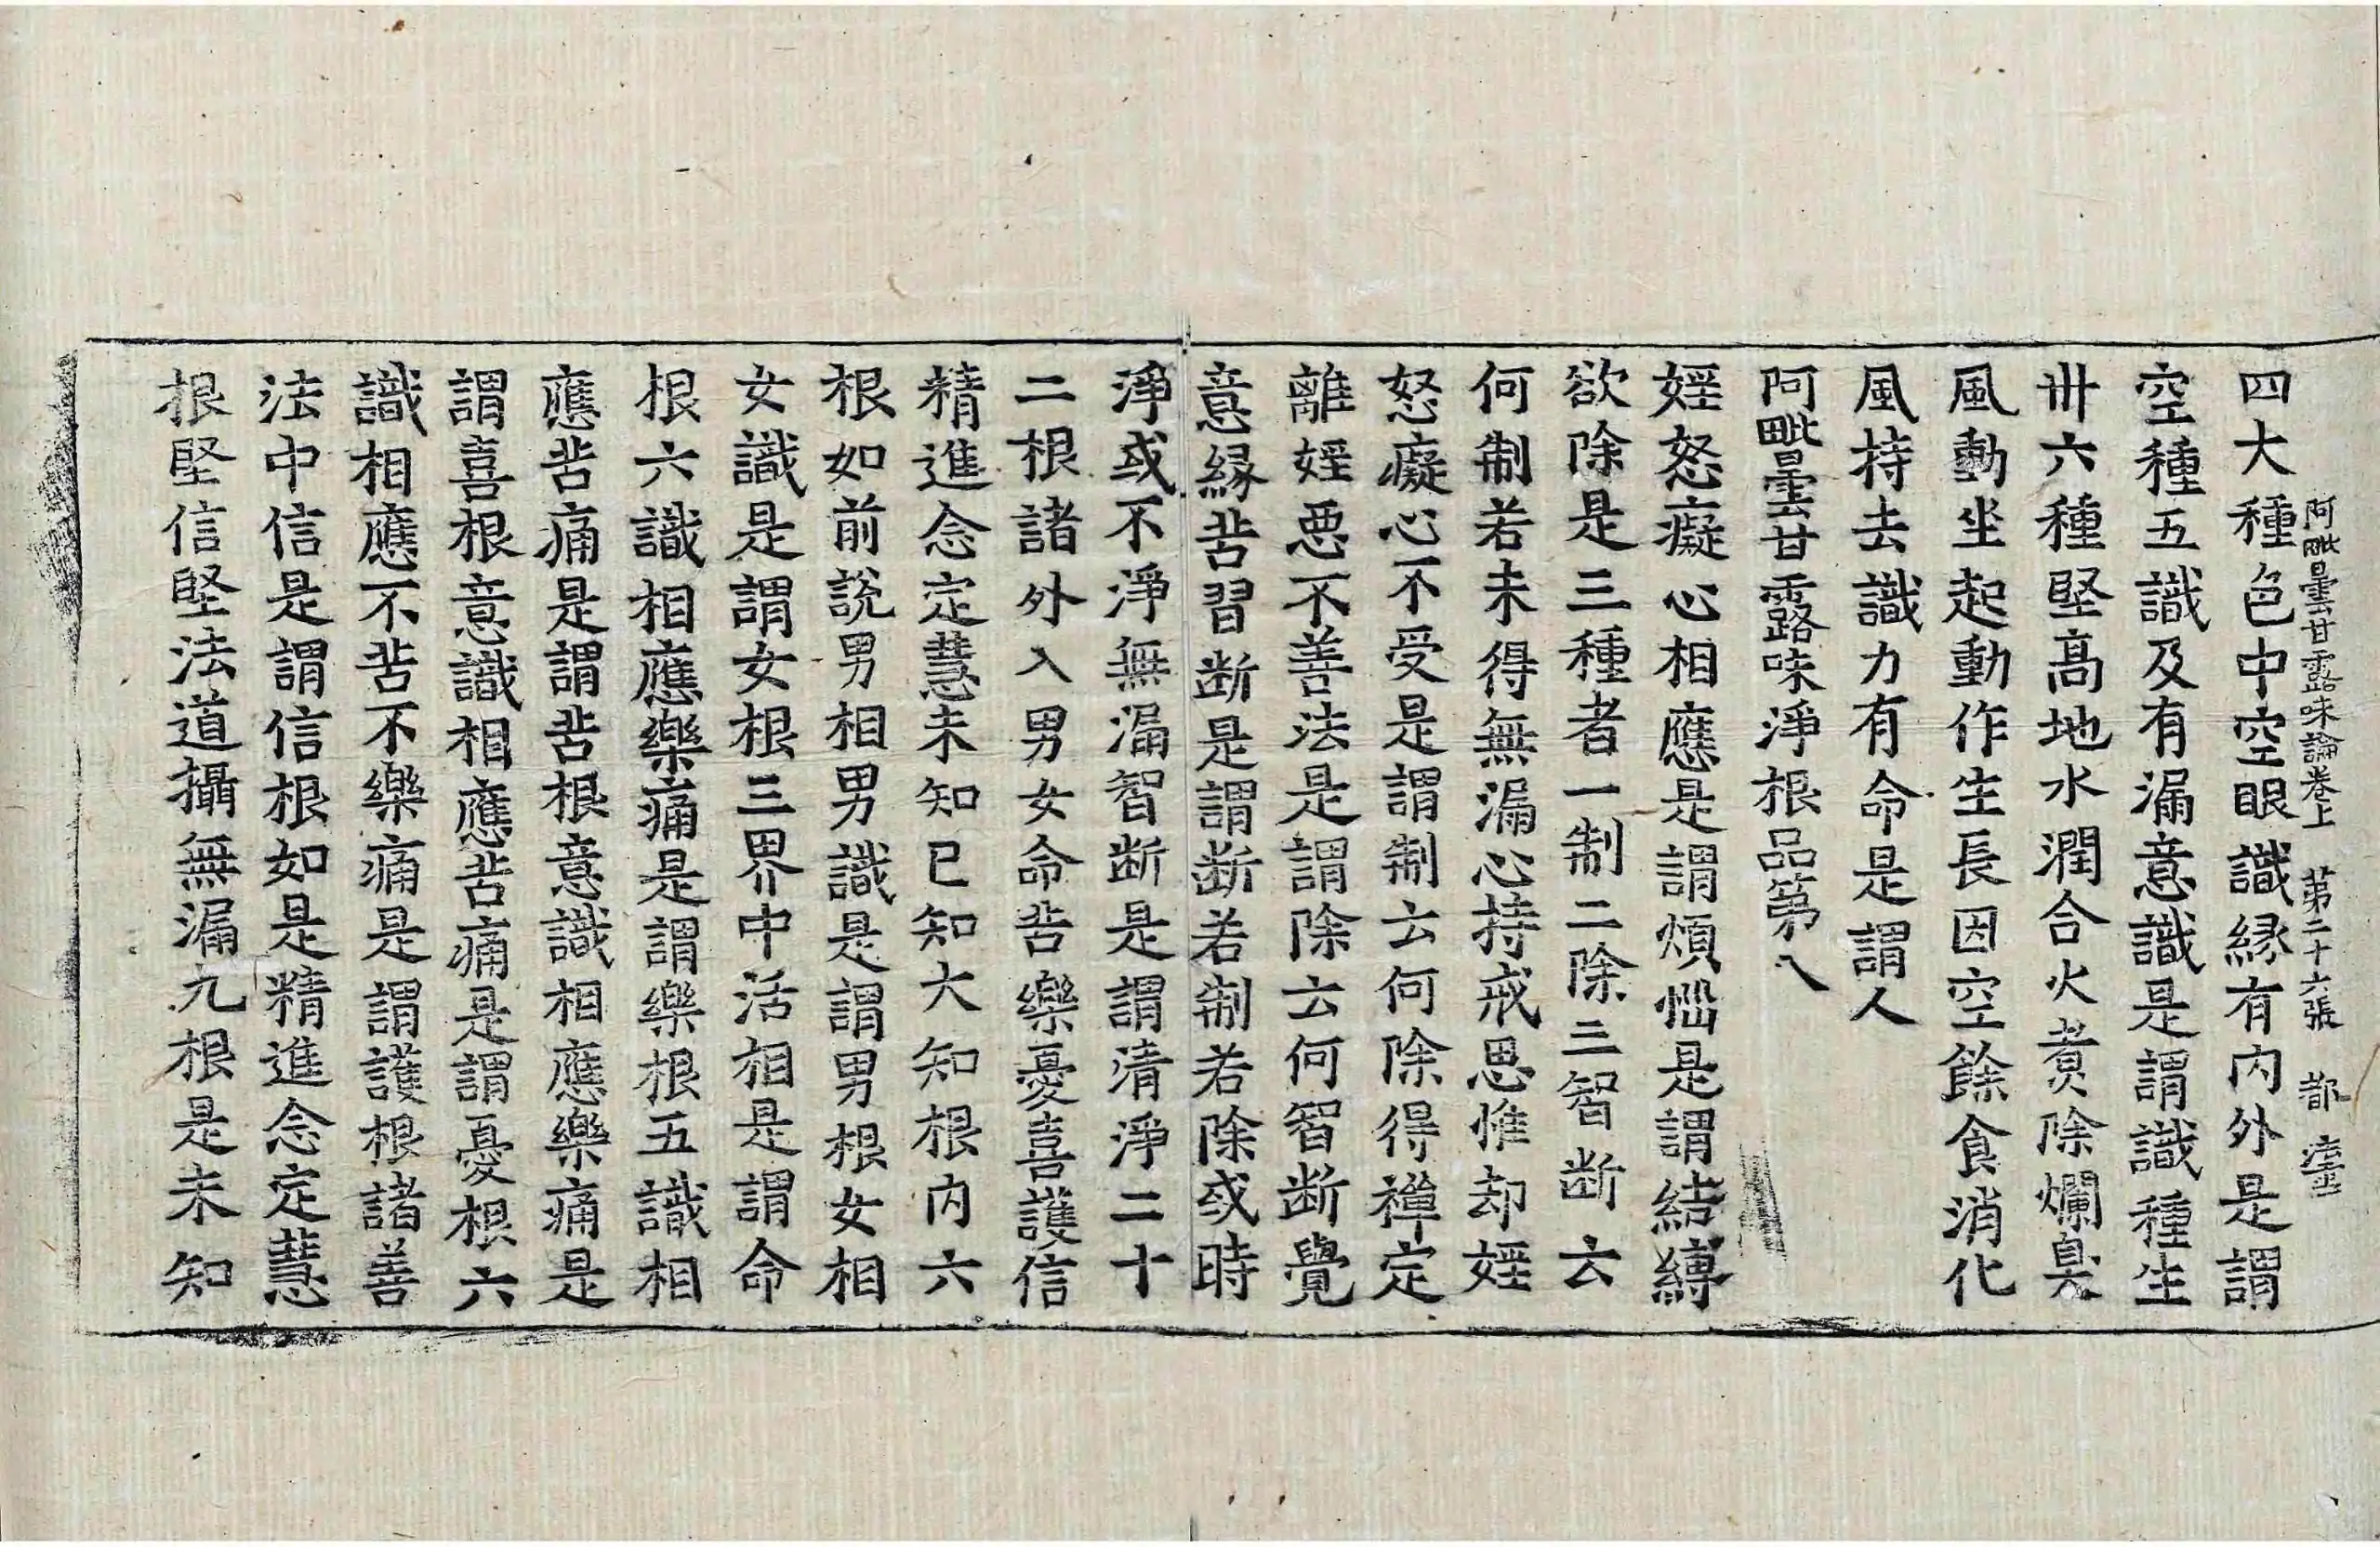 阿毗曇甘露味論卷上　第二十六張　都
四大種色中空眼識縁有内外是謂
空種五識及有漏意識是謂識種生
丗六種堅髙地水潤合火煮除爛臭
風動坐起動作生長因空餘食消化
風持去識力有命是謂人
阿毗曇甘露味淨根品第八
婬怒癡心相應是謂煩惱是謂結縛
欲除是三種者一制二除三智断云
何制若未得無漏心持戒思惟却婬
怒癡心不受是謂制云何除得禪定
離婬惡不善法是謂除云何智断覺
意緣苦習断是謂断若制若除或時
淨或不淨無漏智断是謂清淨二十
二根諸外入男女命苦樂憂喜護信
精進念定慧未知已知大知根内六
根如前說男相男識是謂男根女相
女識是謂女根三界中活相是謂命
根六識相應樂痛是謂樂根五識相
應苦痛是謂苦根意識相應樂痛是
謂喜根意識相應苦痛是謂憂根六
識相應不苦不樂痛是謂護根諸善
法中信是謂信根如是精進念定慧
根堅信堅法道攝無漏九根是未知